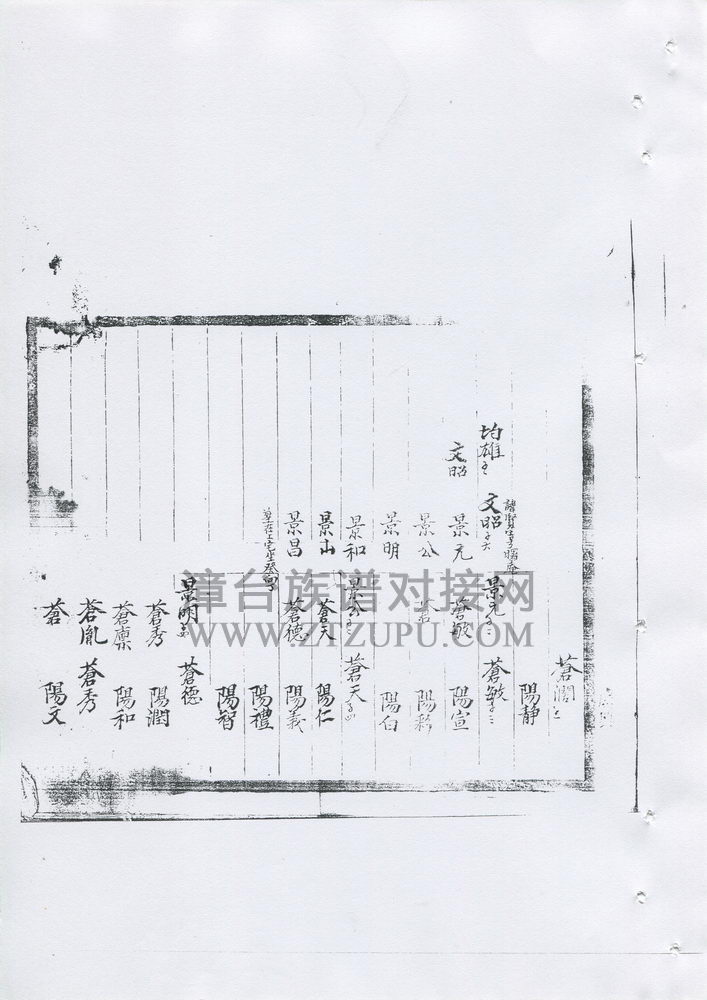 蒼濶
陽靜
均雄
文昭
景元
蒼敏
文昭
景元
蒼敏
陽宣
景公
蒼
陽彩
景明
陽白
景和
景公
蒼天
景山
蒼天
陽仁
景昌
蒼德
陽義
陽禮
陽智
景明
蒼德
蒼秀
陽潤
蒼廪
陽和
蒼胤
蒼秀
蒼
陽文
漳台族谱对接网
WWW.ZTZUPU.COM